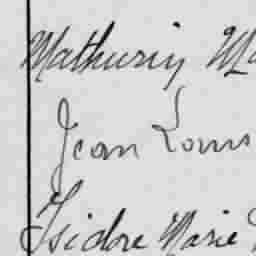 Mathurin Ma
Jean Louis
Isidore Marie